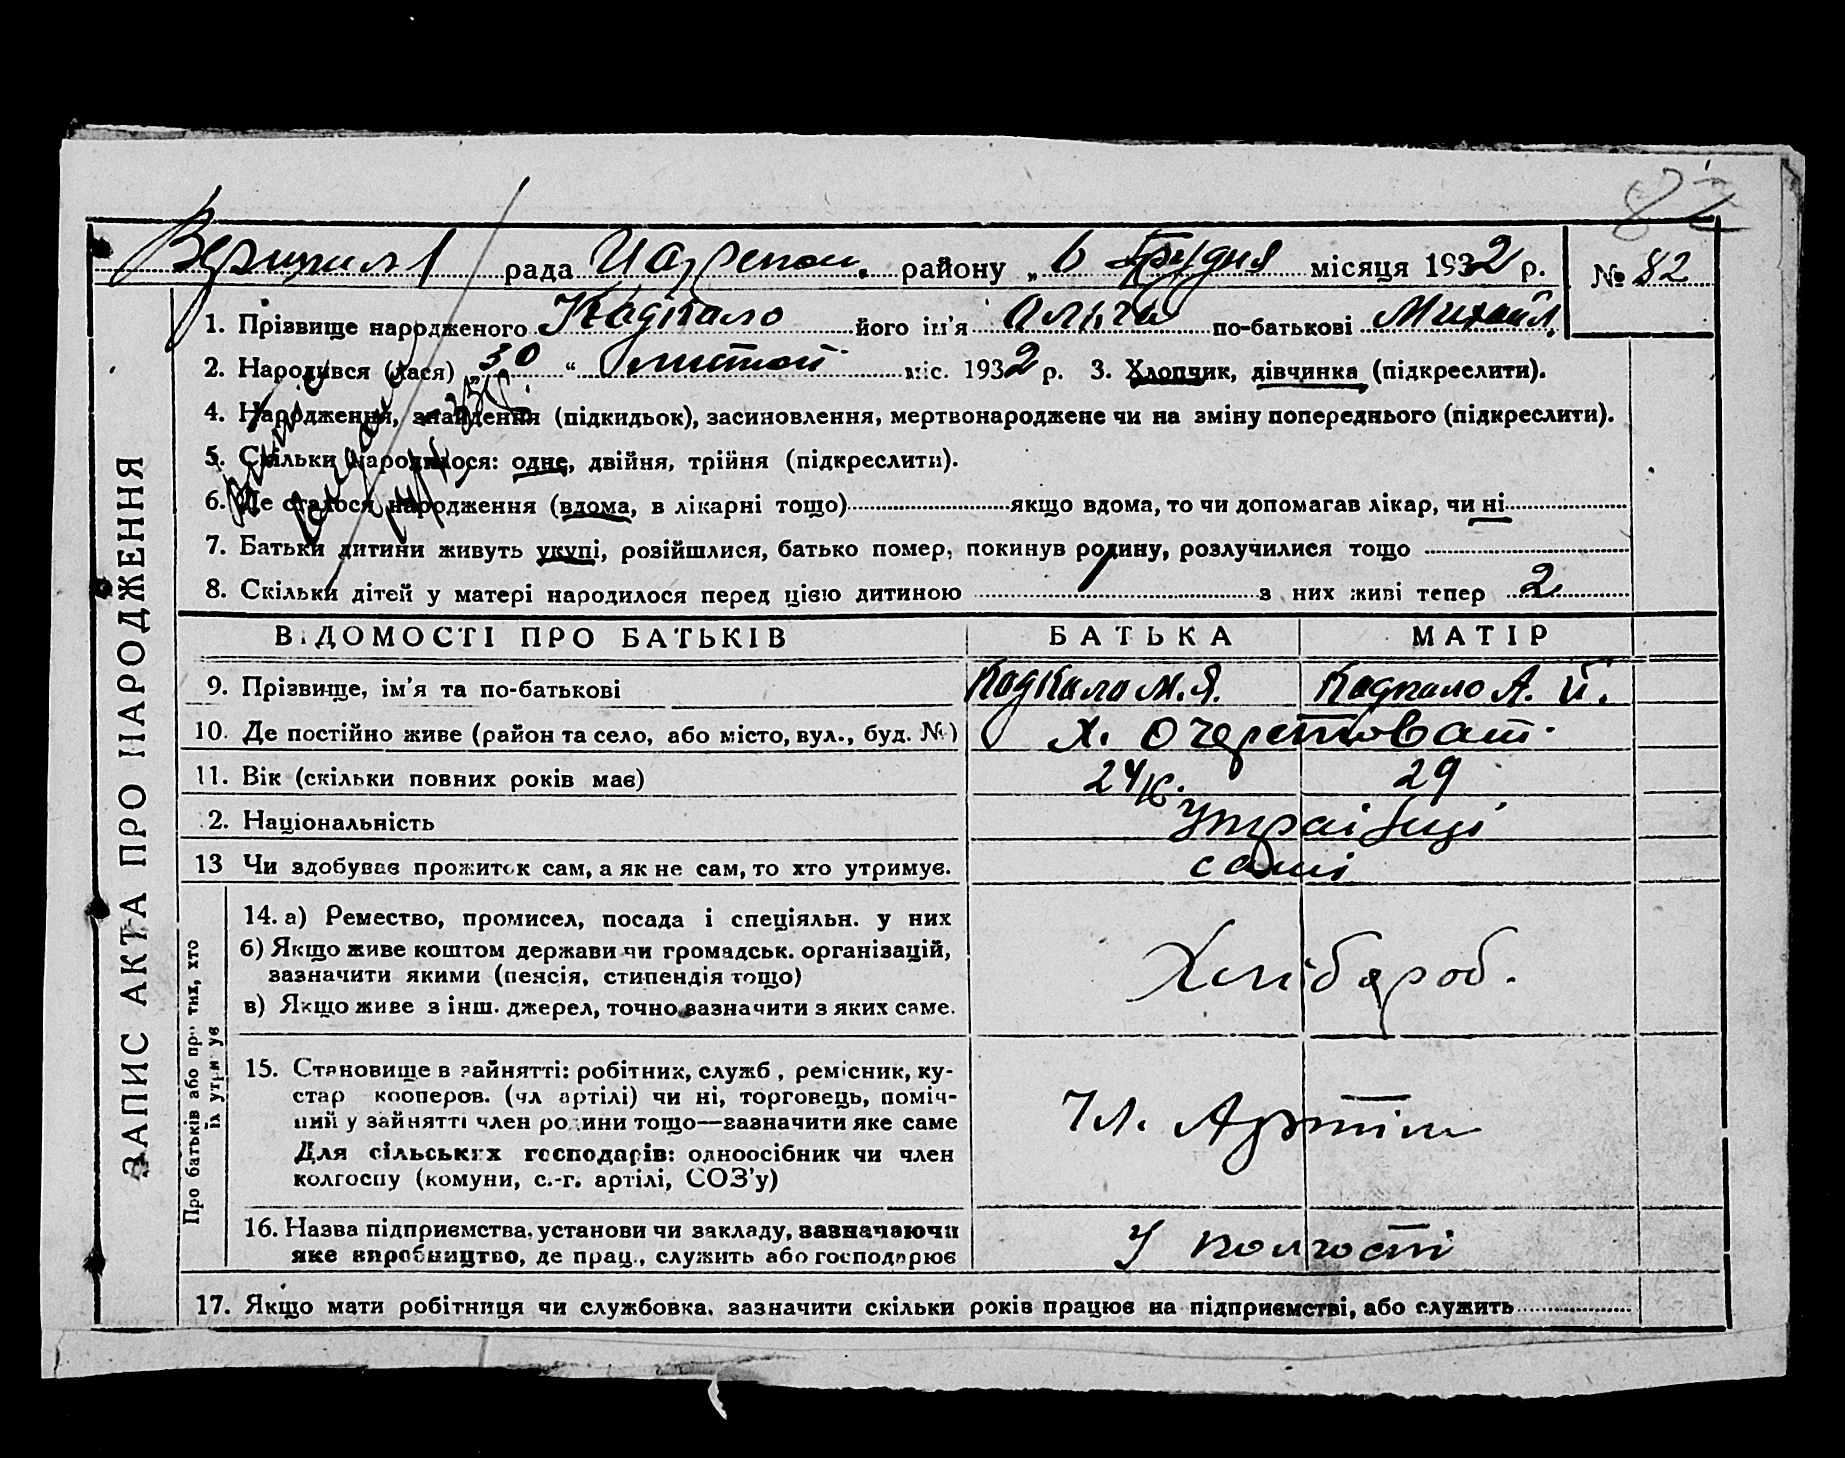 82
рада Царепан. району „6 Грудня місяця 1932 р. № 82
1. Прізвище народженого Кадкало його ім'я Ольга по-батькові Михайл.
2. Народився (лася) „30 “ листоп. міс. 1932 р. 3. Хлопчик, дівчинка (підкреслити).
4. Народження, знайдення (підкидьок), засиновлення, мертвонароджене чи на зміну попереднього (підкреслити).
5. Скільки народилося: одне, двійня, трійня (підкреслити).
6. Де сталося народження (вдома, в лікарні тощо) якщо вдома, то чи допомагав лікар, чи ні
7. Батьки дитини живуть укупі, розійшлися, батько помер, покинув родину, розлучилися тощо
8. Скільки дітей у матері народилося перед цією дитиною 1 з них живі тепер 2
ЗАПИС АКТА ПРО НАРОДЖЕННЯ
ВІДОМОСТІ ПРО БАТЬКІВ БАТЬКА МАТІР
9. Прізвище, ім'я та по-батькові Кадкало М.Я. Кадкало А. Й.
10. Де постійно живе (район та село, або місто, вул., буд. №) х. Очеретоват.
11. Вік (скільки повних років має) 24 29
2. Національність Українці
13 Чи здобуває прожиток сам, а як не сам, то хто утримує. самі
Про батьків або про тих, хто їх утримує
14. а) Ремество, промисел, посада і спеціяльн. у них
б) Якщо живе коштом держави чи громадськ. організацій,
зазначити якими (пенсія, стипендія тощо) Хлібороб.
в) Якщо живе з інш. джерел, точно зазначити з яких саме.
15. Становище в зайнятті: робітник, служб , ремісник, ку-
стар кооперов. (чл артілі) чи ні, торговець, поміч-
ний у зайнятті член родини тощо—зазначити яке саме Чл. Артіли
Для сільських господарів: одноосібник чи член
колгоспу (комуни, с.-г. артілі, СОЗ'у)
16. Назва підприємства, установи чи закладу, зазначаючи
яке виробництво, де прац., служить або господарює У колгоспі
17. Якщо мати робітниця чи службовка, зазначити скільки років працює на підприємстві, або служить